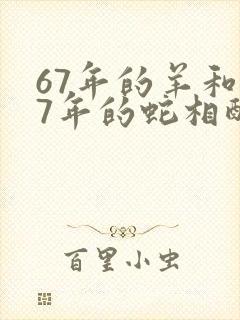 67年的羊和
7年的蛇相配
百里小虫